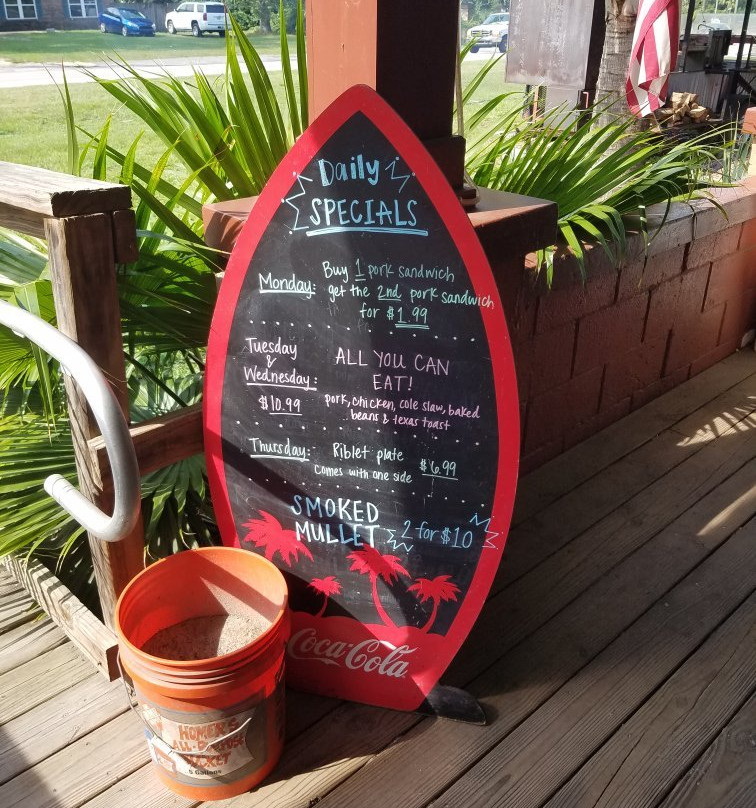 Daily
SPECIALS
Monday: Buy 1 pork sandwich
get the 2nd pork sandwich
for $1.99
Tuesday
&
Wednesday:
$10.99
ALL YOU CAN
EAT!
pork, chicken, cole slaw, baked
beans & texas toast
Thursday: Riblet plate
comes with one side
$6.99
SMOKED
MULLET 2 for $10
Coca-Cola
HOMER'S
ALL-PURPOSE
BUCKET
5 Gallons